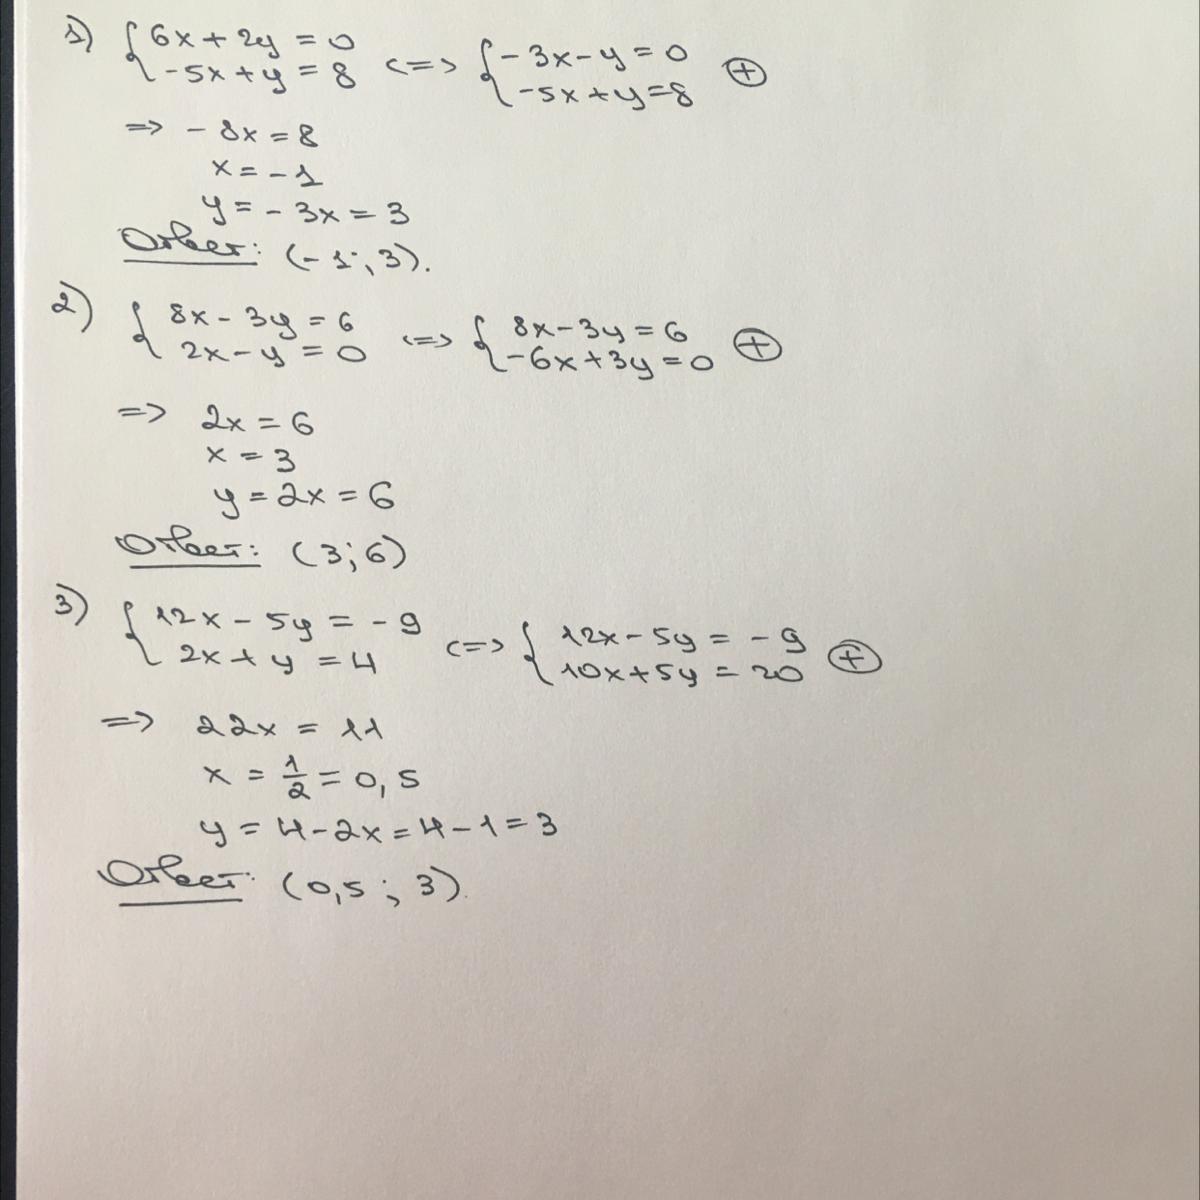 1) { 6x + 2y = 0 <=> { -3x - y = 0 ⊕
-5x + y = 8 -5x + y = 8
=> -8x = 8
x = -1
y = -3x = 3
Ответ: (-1; 3).
2) { 8x - 3y = 6 <=> { 8x - 3y = 6 ⊕
2x - y = 0 -6x + 3y = 0
=> 2x = 6
x = 3
y = 2x = 6
Ответ: (3; 6)
3) { 12x - 5y = -9 <=> { 12x - 5y = -9 ⊕
2x + y = 4 10x + 5y = 20
=> 22x = 11
x = 1/2 = 0,5
y = 4 - 2x = 4 - 1 = 3
Ответ: (0,5 ; 3).